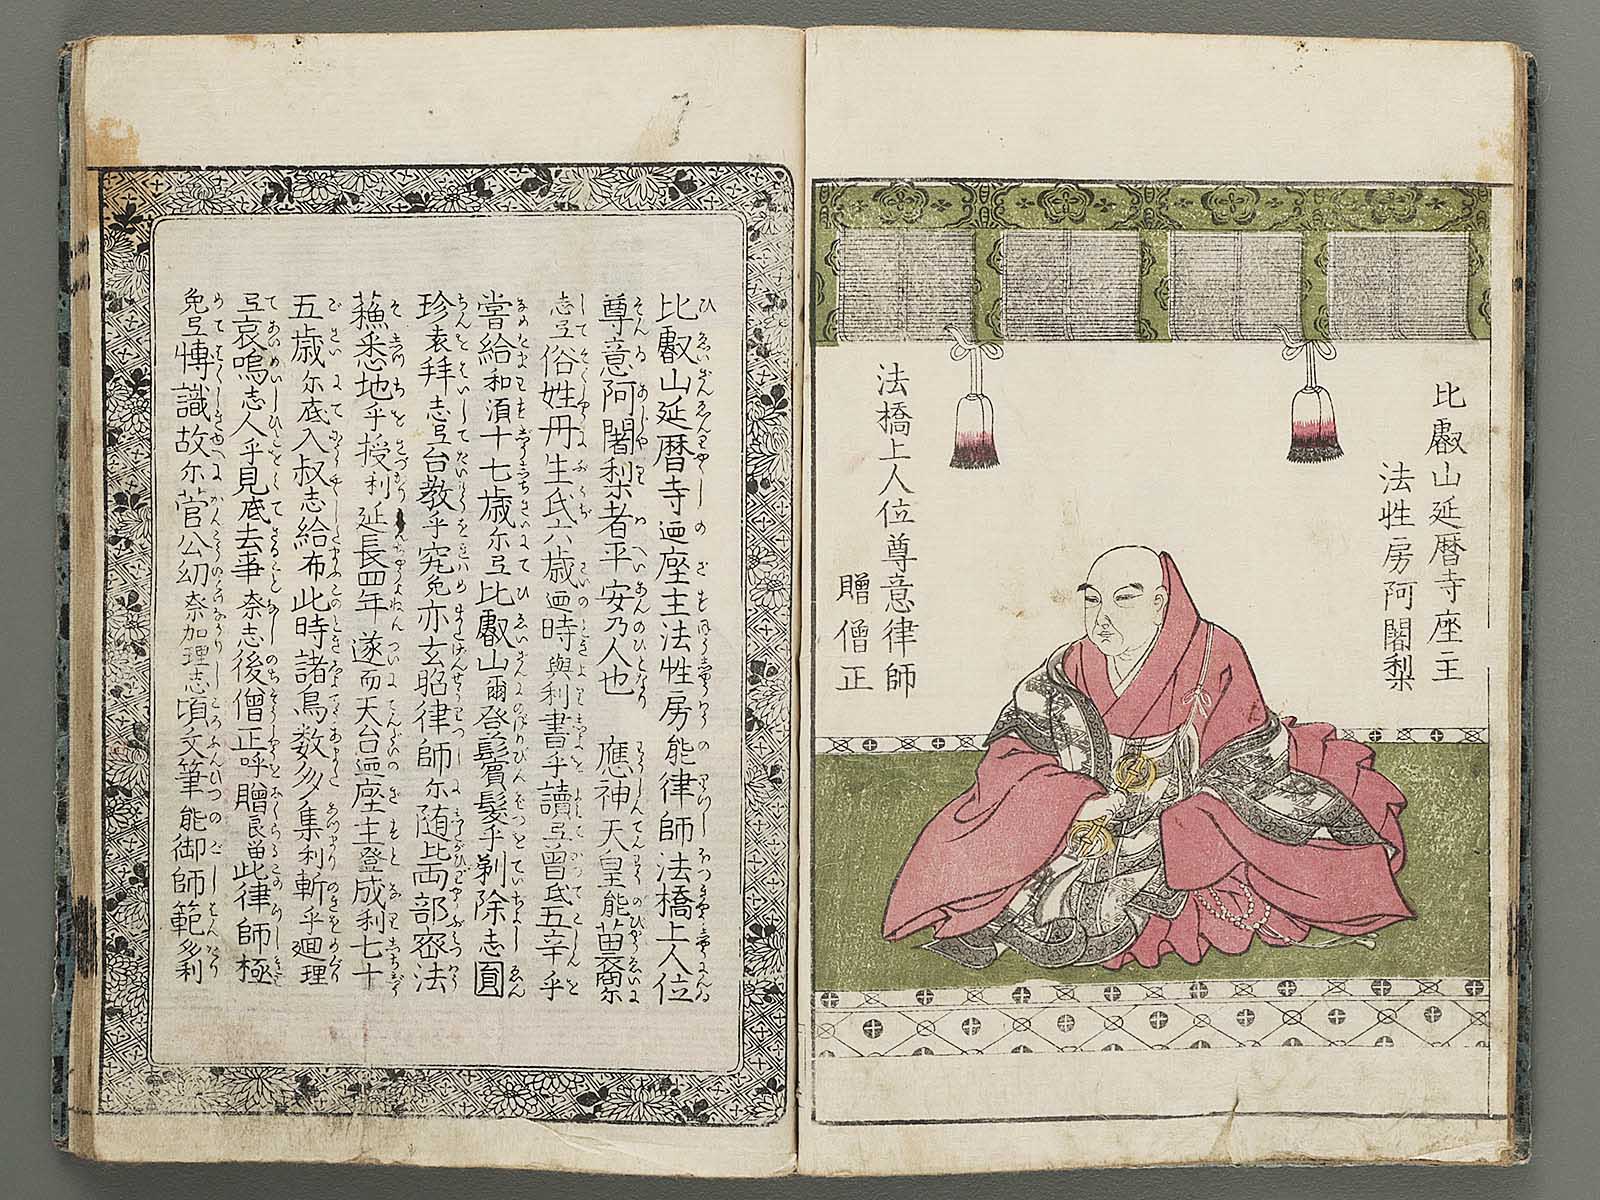 比叡山延暦寺座主
法性房阿闍梨
法橋上人位尊意律師
贈僧正
比叡山延暦寺廼座主法性房能律師法橋上人位
尊意阿闍梨者平安乃人也應神天皇能苗裔尓
志弖俗姓丹生氏六歳廼時與利書乎讀弖曽底五辛乎
嘗給和須十七歳尓弖比叡山爾登鬢髪乎剃除志圓
珍袁拜志弖台教乎究免亦玄昭律師尓随此両部密法
蘓悉地乎授利延長四年遂而天台廼座主登成利七十
五歳尓底入叔志給布此時諸鳥数多集利斬乎廻理
弖哀鳴志人乎見底去事奈志後僧正呼贈良留此律師極
免弖博識故尓菅公幼奈加理志頃文筆能御師範多利